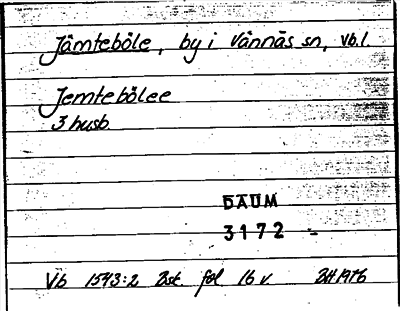 Jämteböle, by i Vännäs sn, Vb. l.
Jemtebölee
3 husb.
DAUM
3172
Vb 1543:2 Zst. fol 16 v. BH 1976